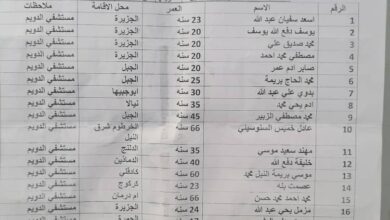 الرقم الاسم العمر محل الاقامة ملاحظات
1 اسعد سفيان عبد الله 23 سنه الجزيرة مستشفي الدويم
2 يوسف دفع الله يوسف 20 سنه الجزيرة مستشفي الدويم
3 محمد صديق علي 20 سنه الجزيرة مستشفي الدويم
4 مصطفي محمد احمد 20 سنه الجزيرة مستشفي الدويم
5 صابر ادم عمر 20 سنه الجبل مستشفي الدويم
6 محمد الحاج بريمة 25 سنه الجبل مستشفي الدويم
7 بدوي علي عبد الله 30 سنه ابوجبيها مستشفي الدويم
8 ادم يحي محمد 35 سنه نيالا مستشفي الدويم
9 محمد مصطفي الزبير 45 سنه الجبل مستشفي الدويم
10 عادل خميس السنوسيني 66 سنه الخرطوم شرق النيل مستشفي الدويم
11 مهند سعيد موسي 35 سنه الدلنج مستشفي الدويم
12 خليفة دفع الله 40 سنه الدمازين مستشفي الدويم
13 موسي بريمة النيل محمد 60 سنه كادقلي مستشفي الدويم
14 عصمت بله 23 سنه كركوج مستشفي الدويم
15 محمد احمد محمد حسن 66 سنه ام درمان مستشفي الدويم
16 مزمل يحي عبد الله 24 سنه الجزيرة مستشفي الدويم